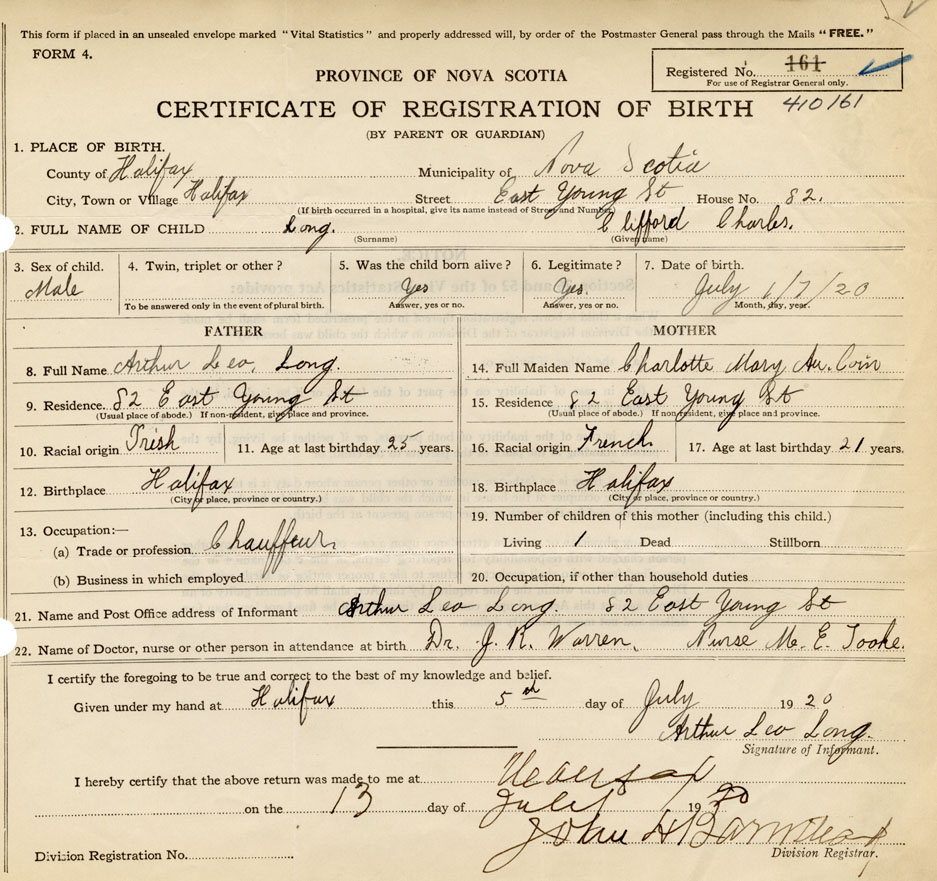 This form if placed in an unsealed envelope marked "Vital Statistics" and properly addressed will, by order of the Postmaster General pass through the Mails "FREE."
FORM 4.
Registered No. 161
For use of Registrar General only.
PROVINCE OF NOVA SCOTIA
CERTIFICATE OF REGISTRATION OF BIRTH 410161
(BY PARENT OR GUARDIAN)
1. PLACE OF BIRTH.
County of Halifax Municipality of Nova Scotia
City, Town or Village Halifax Street East Young St House No. 82.
(If birth occurred in a hospital, give its name instead of Street and Number)
2. FULL NAME OF CHILD Long. Clifford Charles.
(Surname) (Given name)
3. Sex of child. 4. Twin, triplet or other? 5. Was the child born alive? 6. Legitimate? 7. Date of birth.
Male Yes Yes July 1/7/20
To be answered only in the event of plural birth. Answer, yes or no. Answer, yes or no. Month, day, year.
FATHER MOTHER
8. Full Name Arthur Leo Long. 14. Full Maiden Name Charlotte Mary Au. Coin
9. Residence. 82 East Young St 15. Residence 82 East Young St
(Usual place of abode.) If non-resident, give place and province. (Usual place of abode.) If non-resident, give place and province.
10. Racial origin Irish 11. Age at last birthday 25 years. 16. Racial origin French 17. Age at last birthday 21 years.
12. Birthplace Halifax 18. Birthplace Halifax
(City or place, province or country.) (City or place, province or country.)
13. Occupation:— 19. Number of children of this mother (including this child.)
(a) Trade or profession Chauffeur Living 1 Dead Stillborn
(b) Business in which employed 20. Occupation, if other than household duties
21. Name and Post Office address of Informant Arthur Leo Long. 82 East Young St
22. Name of Doctor, nurse or other person in attendance at birth Dr. J. R. Warren, Nurse M. E. Tooke.
I certify the foregoing to be true and correct to the best of my knowledge and belief.
Given under my hand at Halifax this 5 day of July 1920
Arthur Leo Long.
Signature of Informant.
I hereby certify that the above return was made to me at
on the 13 day of July 1920
John H
Division Registration No. Division Registrar.